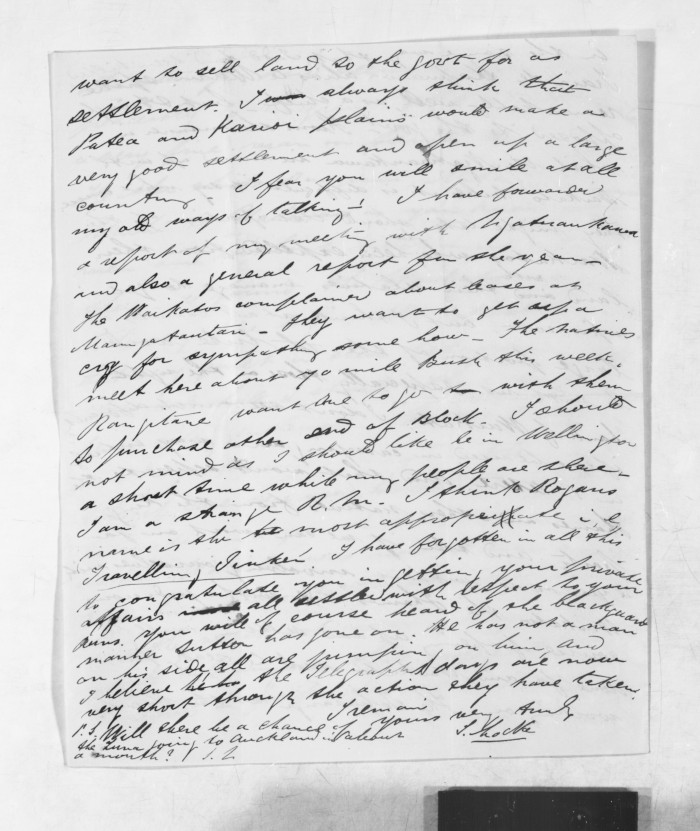 want to sell land to the govt for as
settlement. I always think that
Patea and Karioi plains would make a
very good settlement and open up a large
country - I fear you will smile at all
my old ways of talking! I have forwarded
a report of my meeting with Ngatuaukawa
and also a general report for the year -
The Waikatos complained about leases at
Maungatautari - they want to get up a
cry for sympathy some how - The natives
meet here about 70 mile Bush this week.
Rangitane want me to go with them
to purchase other end of Block. I should
not mind as I should like be in Wellington
a short time while my people are there -
I am a strange R.M. I think Rogans
name is the most appropriate i.e.
Travelling Tinker! I have forgotten in all this
to congratulate you in getting your private
affairs all settled with respect to your
Runs. You will of course heard of the blackguard
manner Sutton has gone on. He has not a man
on his side, all are jumping on him and
I believe the Telegraph days are now
very short through the action they have taken.
I remain
yours very truly
S. Locke
P.S. Will there be a chance of
the Luna going to Auckland in about
a month? S. L